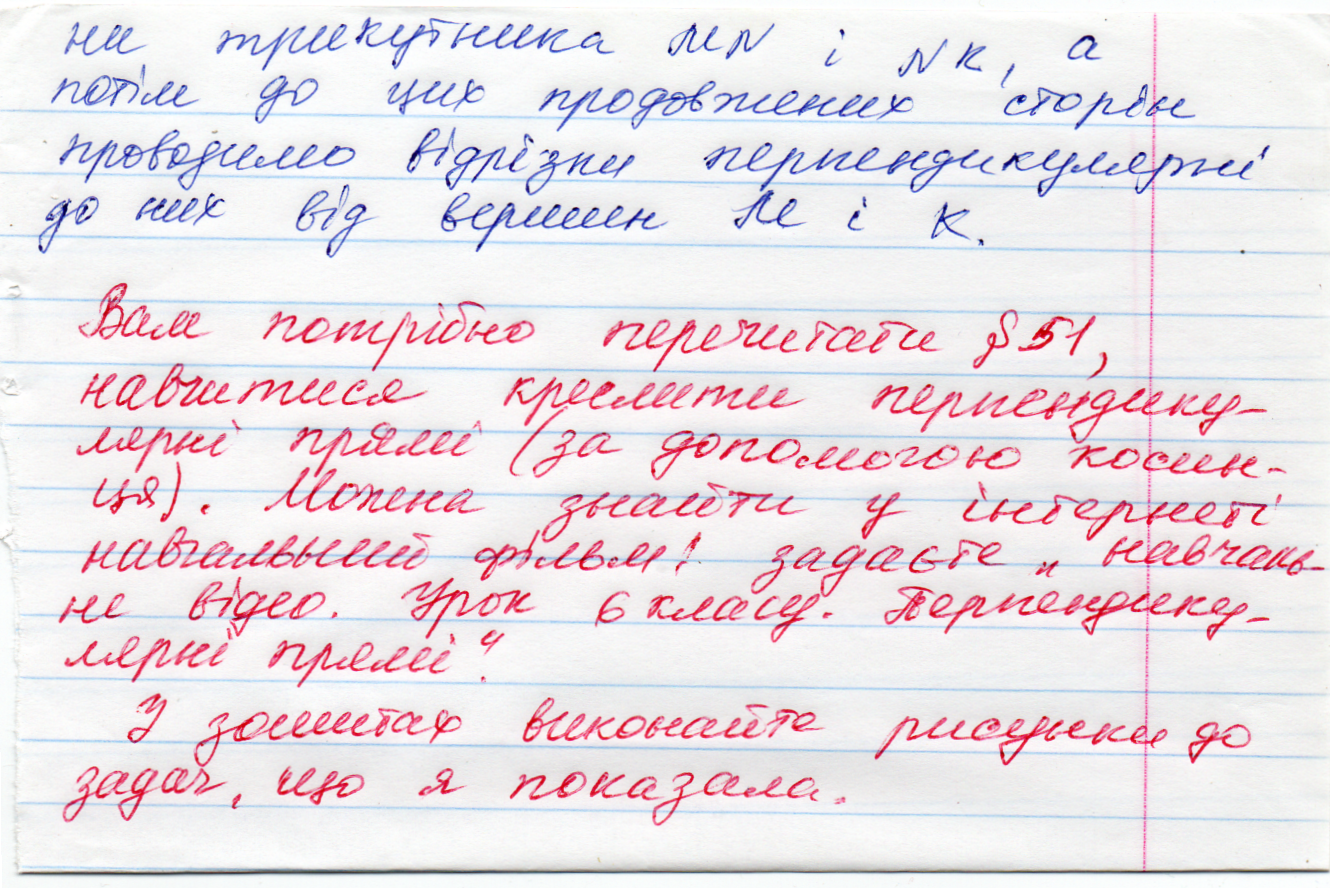 ни трикутника MN і NK, а
потім до цих продовжених сторін
проводимо відрізки перпендикулярні
до них від вершин М і К.
Вам потрібно перечитати §51,
навчитися креслити перпендику-
лярні прямі (за допомогою косин-
ця). Можна знайти у інтернеті
навчальний фільм: задаєте „навчаль-
не відео. Урок 6 класу. Перпендику-
лярні прямі“.
У зошитах виконайте рисунки до
задач, що я показала.